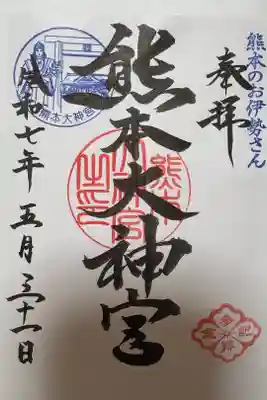 熊本のお伊勢さん
奉拝
熊本大神宮
熊本大神宮之印
令和七年五月三十一日
熊本大神宮